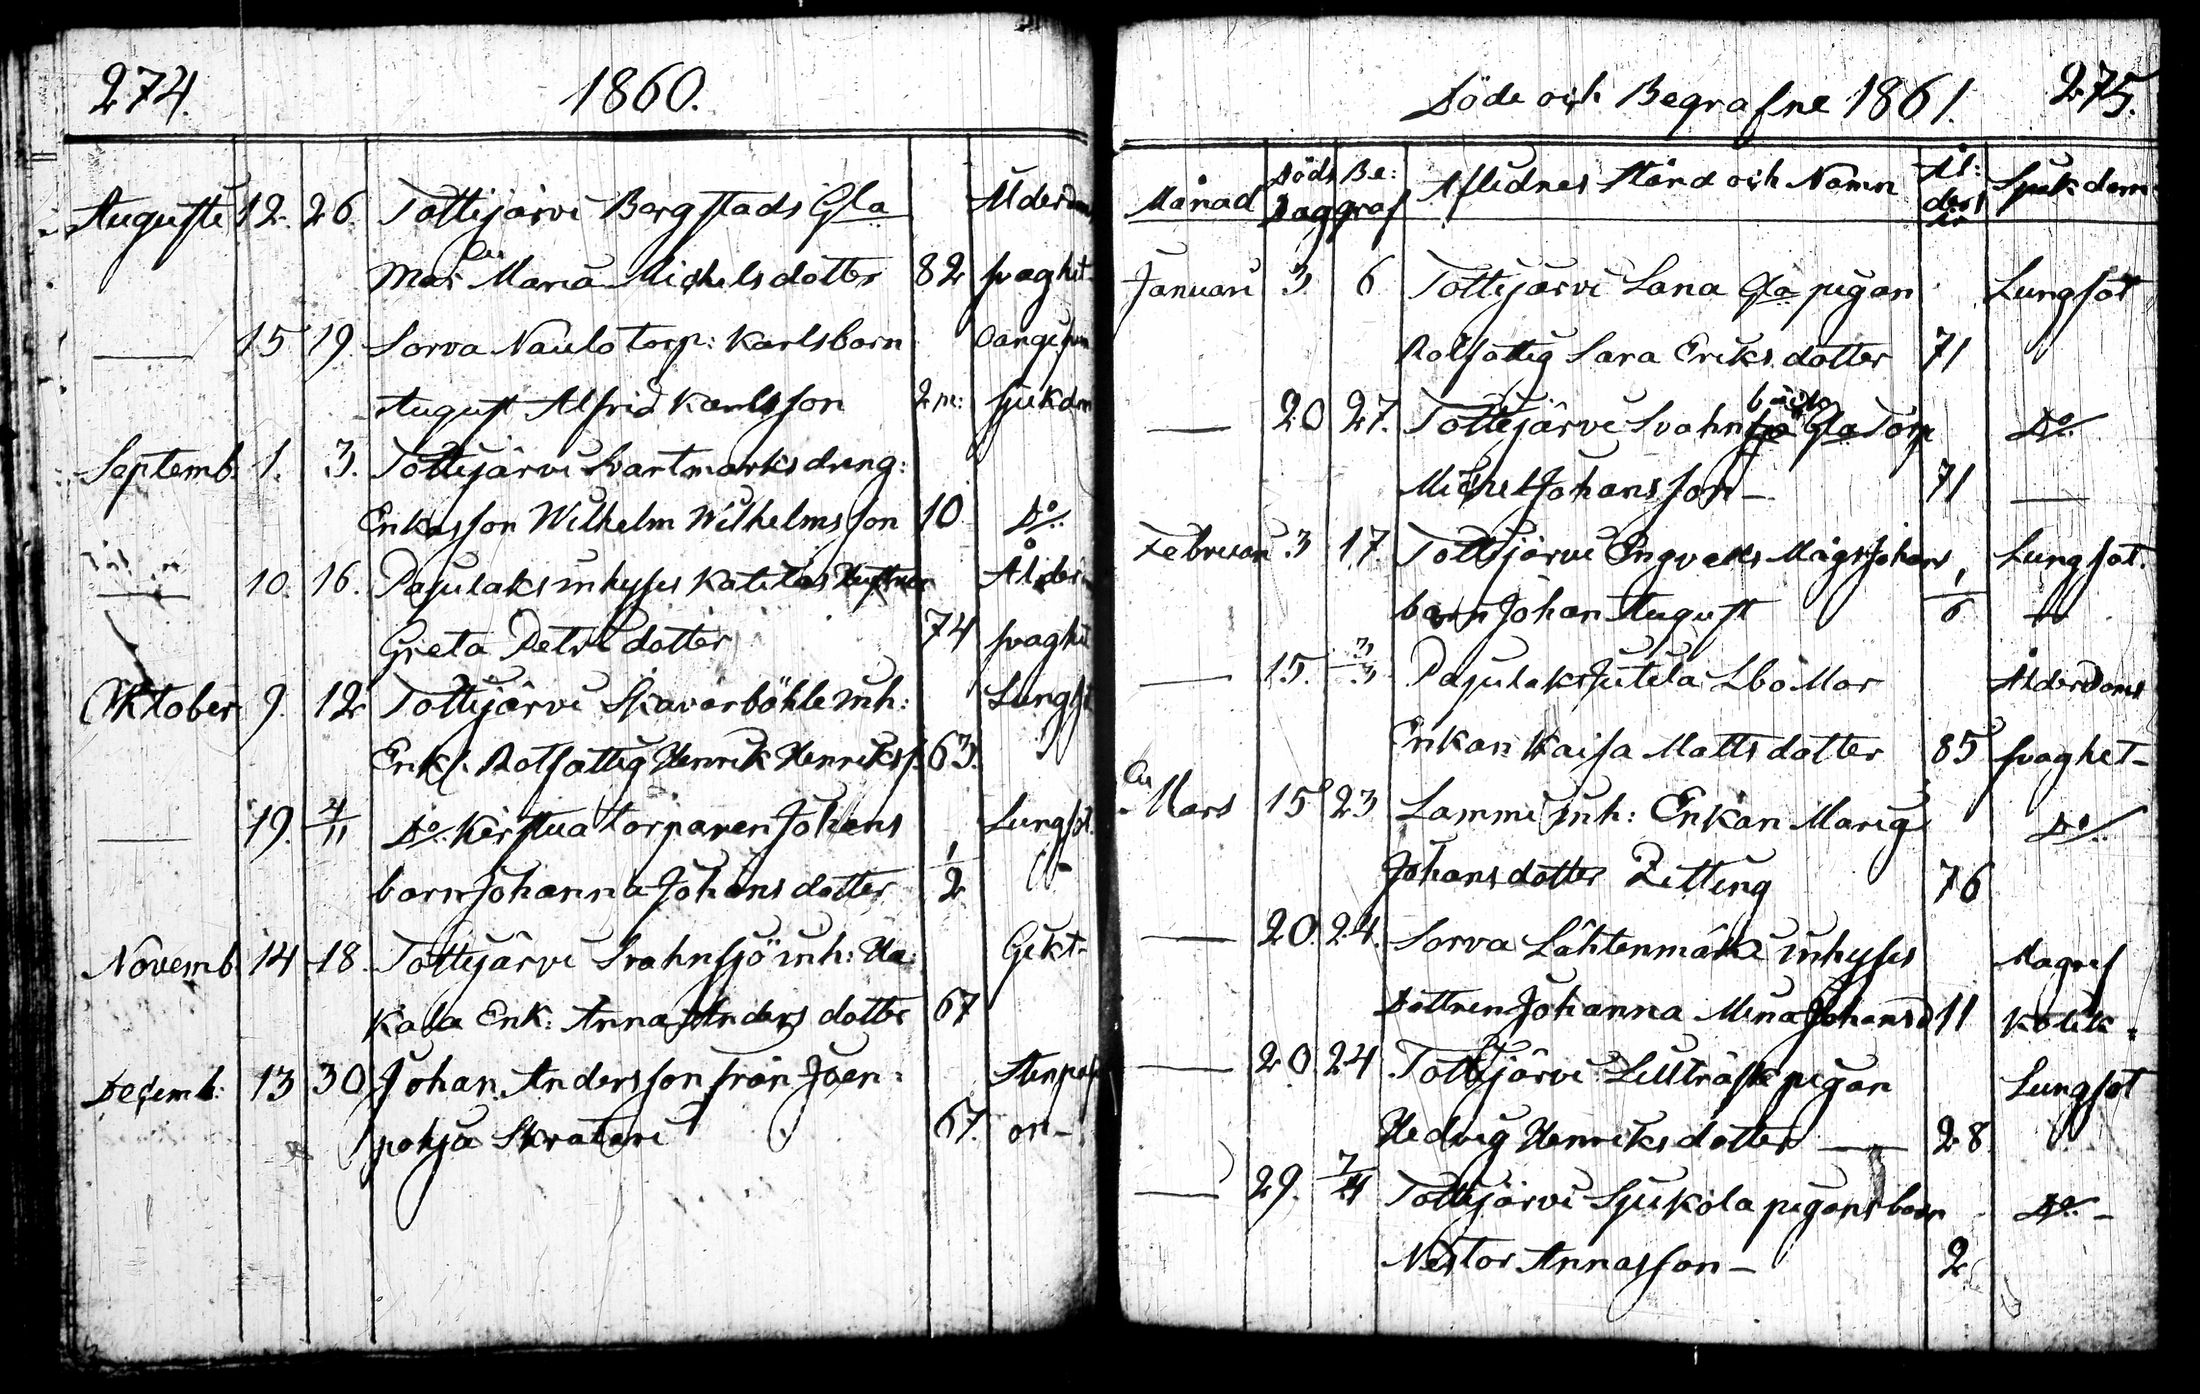 274. 1860.
Augusti 12. 26. Tottijärvi Bergstads Gla Ålderdoms
Mor Maria Michelsdotter 82 svaghet
— 15 19. Sorva Naulo torp: Karlsbarn Oangifven
August Alfrid Karlsson 2 m: sjukdom
Septemb. 1. 3. Tottijärvi Svartmarks dreng:
Enkasson Wilhelm Wilhelmsson 10 Do.
— 10. 16. Pajulaks inhyses Katilas Hustrun Ålderdoms
Greta Petridotter 74 svaghet
Oktober 9. 12 Tottijärvi Skavarböhle inh: Lungsot
Enkl. Rotfattig Henrik Henrikss. 63.
— 19. 4/11 Do. Kirstua torparen Johans Lungsot.
barn Johanna Johansdotter 1/2
Novemb. 14 18. Tottijärvi Svahnsjö inh: Ha: Gikt.
Kala Enk: Anna Andersdotter 67
Decemb: 13 30 Johan Andersson från Joen: Stenpass
pohja Skratari 67. on -
Döde och Begrafne 1861. 275.
Månad Döds Dag Be: graf Aflidnes Stånd och Namn Ål: ders år Sjukdom
Januari 3. 6 Tottijärvi Lana Gla pigan Lungsot
Rotfattig Sara Eriksdotter 71
— 20 27. Tottijärvi Svahn Gla Torp Do.
Michel Johansson — 71 —
Februari 3 17. Tottijärvi Ingvals Mågs Johans 1/6 Lungsot.
barn Johan August
— 15. 3/3 Pajulaks Jutila Lbo Mor Ålderdoms
Enkan Kaisa Mattsdotter 85 svaghet -
Mars 15 23 Lammi inh: Enkan Maria Do.
Johansdotter Zitting 76
— 20. 24. Sorva Lähtenmäki inhyses Magref
Dottren Johanna Mina Johansd 11 kolik.
— 20 24 Tottijärvi Lillträsk pigan Lungsot
Hedvig Henriksdotter — 28
— 29. 7/4 Tottijärvi Sjukola pigans barn Do. -
Nestor Annasson — 2